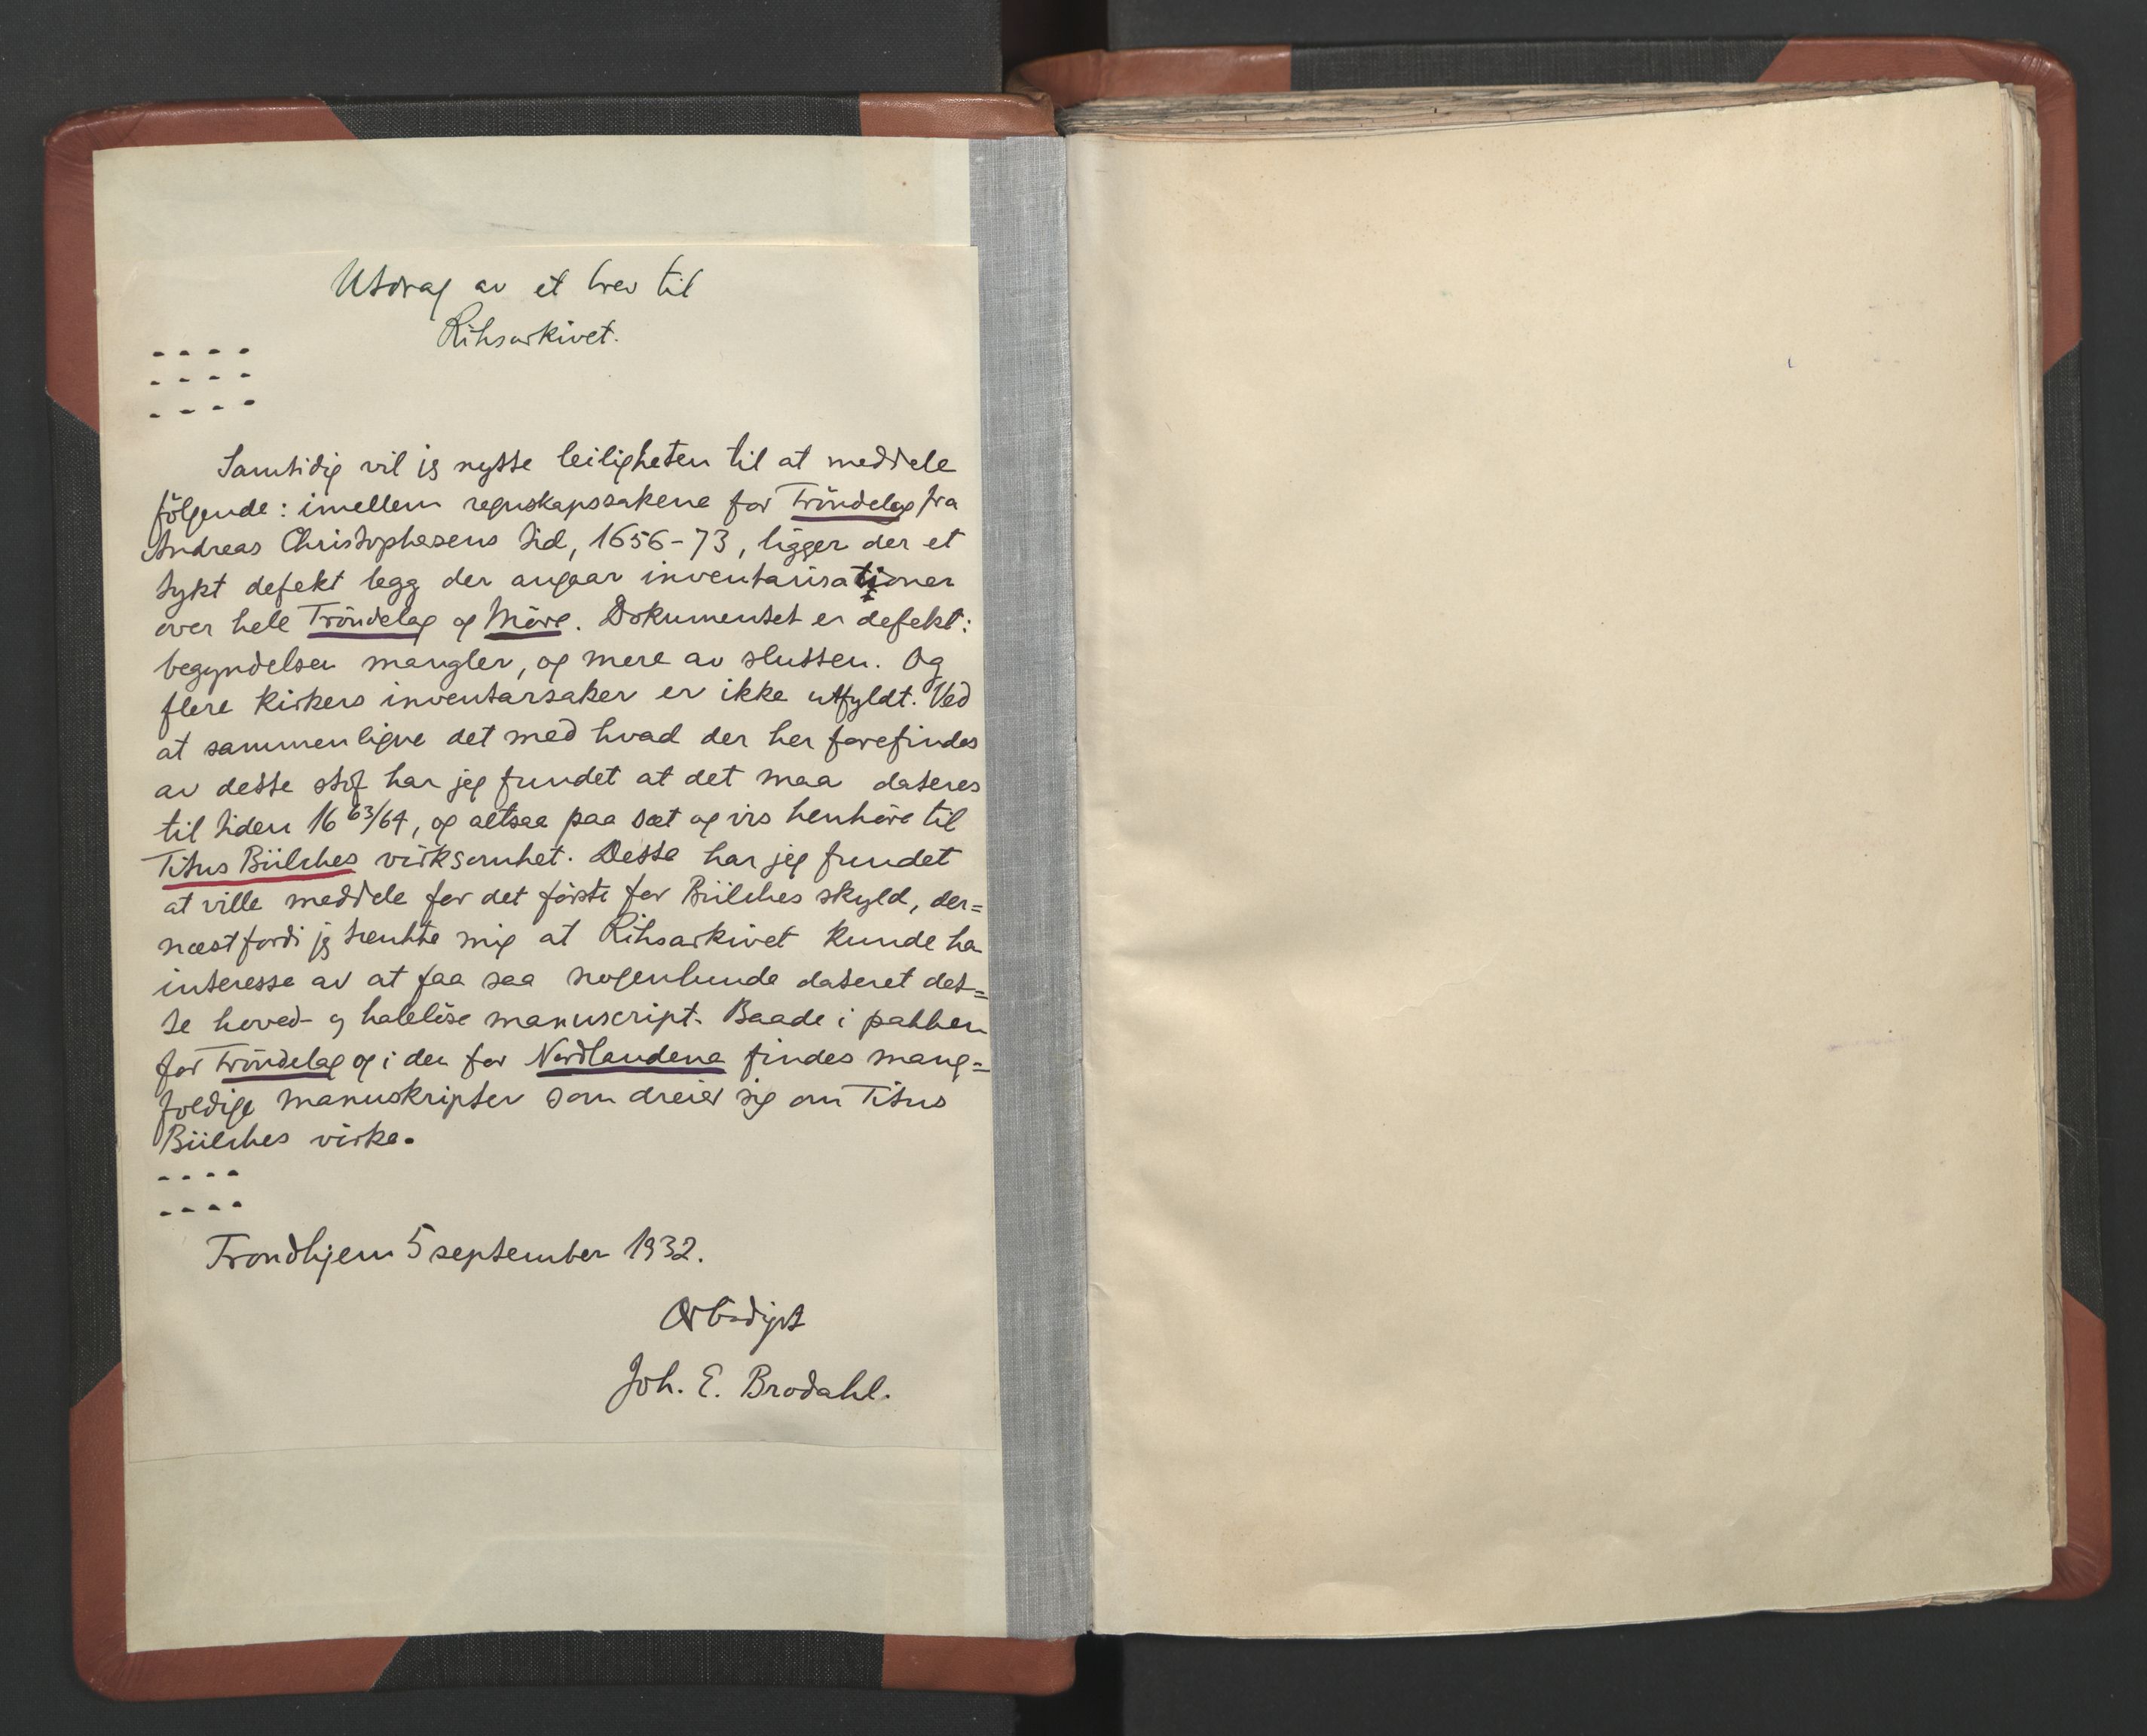 Utdrag av et brev til
Riksarkivet.
- - - -
- - - -
- - - -
Samtidig vil jg nytte leiligheten til at meddele
følgende: imellem regnskapssakene for Tröndelag fra
Andreas Christophesens tid, 1656-73, ligger der et
tykt defekt legg der angaar inventarisationer
over hele Tröndelag og Möre. Dokumentet er defekt:
begyndelsen mangler, og mere av slutten. Og
flere kirkers inventarsaker er ikke utfyldt. Ved
at sammenligne det med hvad der her forefindes
av dette stof har jeg fundet at det maa dateres
til tiden 16 63/64, og altsaa paa sæt og vis henhöre til
Titus Bülches virksomhet. Dette har jeg fundet
at ville meddele for det förste for Bülches skyld, der=
næst fordi jg tænkte mig at Riksarkivet kunde ha
interesse av at faa saa nogenlunde dateret det=
te hoved- og haleløse manuscript. Baade i pakken
for Tröndelag og i den for Nordlandene findes mang=
foldige manuskripter som dreier sig om Titus
Bülches virke.
- - - -
- - - -
Trondhjem 5 september 1932.
Ærbødigst
Joh. E. Brodahl.